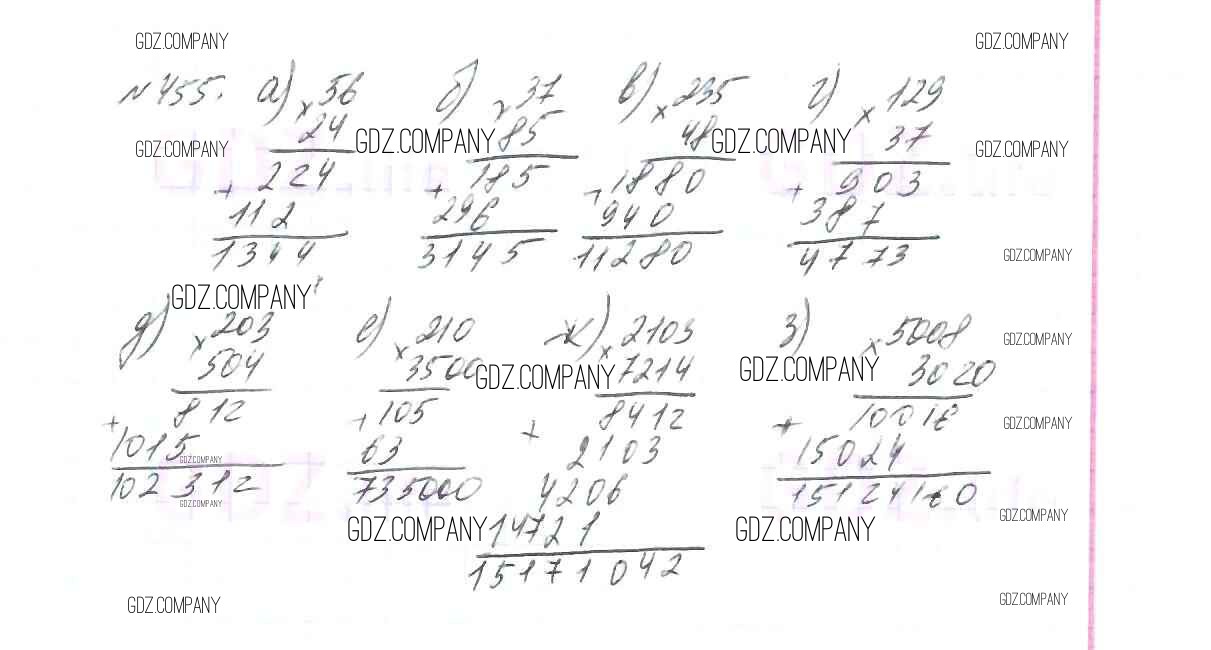 GDZ.COMPANY GDZ.COMPANY
№455. а) × 56 б) × 37 в) × 235 г) × 129
24 85 48 37
GDZ.COMPANY GDZ.COMPANY GDZ.COMPANY GDZ.COMPANY
+ 224 + 185 + 1880 + 903
112 296 940 387
1344 3145 11280 4773
GDZ.COMPANY
GDZ.COMPANY
д) × 203 е) × 210 ж) × 2103 з) × 5008
GDZ.COMPANY
504 3500 7214 3020
GDZ.COMPANY GDZ.COMPANY
+ 812 + 105 + 8412 + 10016
GDZ.COMPANY
1015 63 2103 15024
GDZ.COMPANY
102312 735000 4206 15124160
GDZ.COMPANY
14721
GDZ.COMPANY GDZ.COMPANY GDZ.COMPANY
15171042
GDZ.COMPANY GDZ.COMPANY